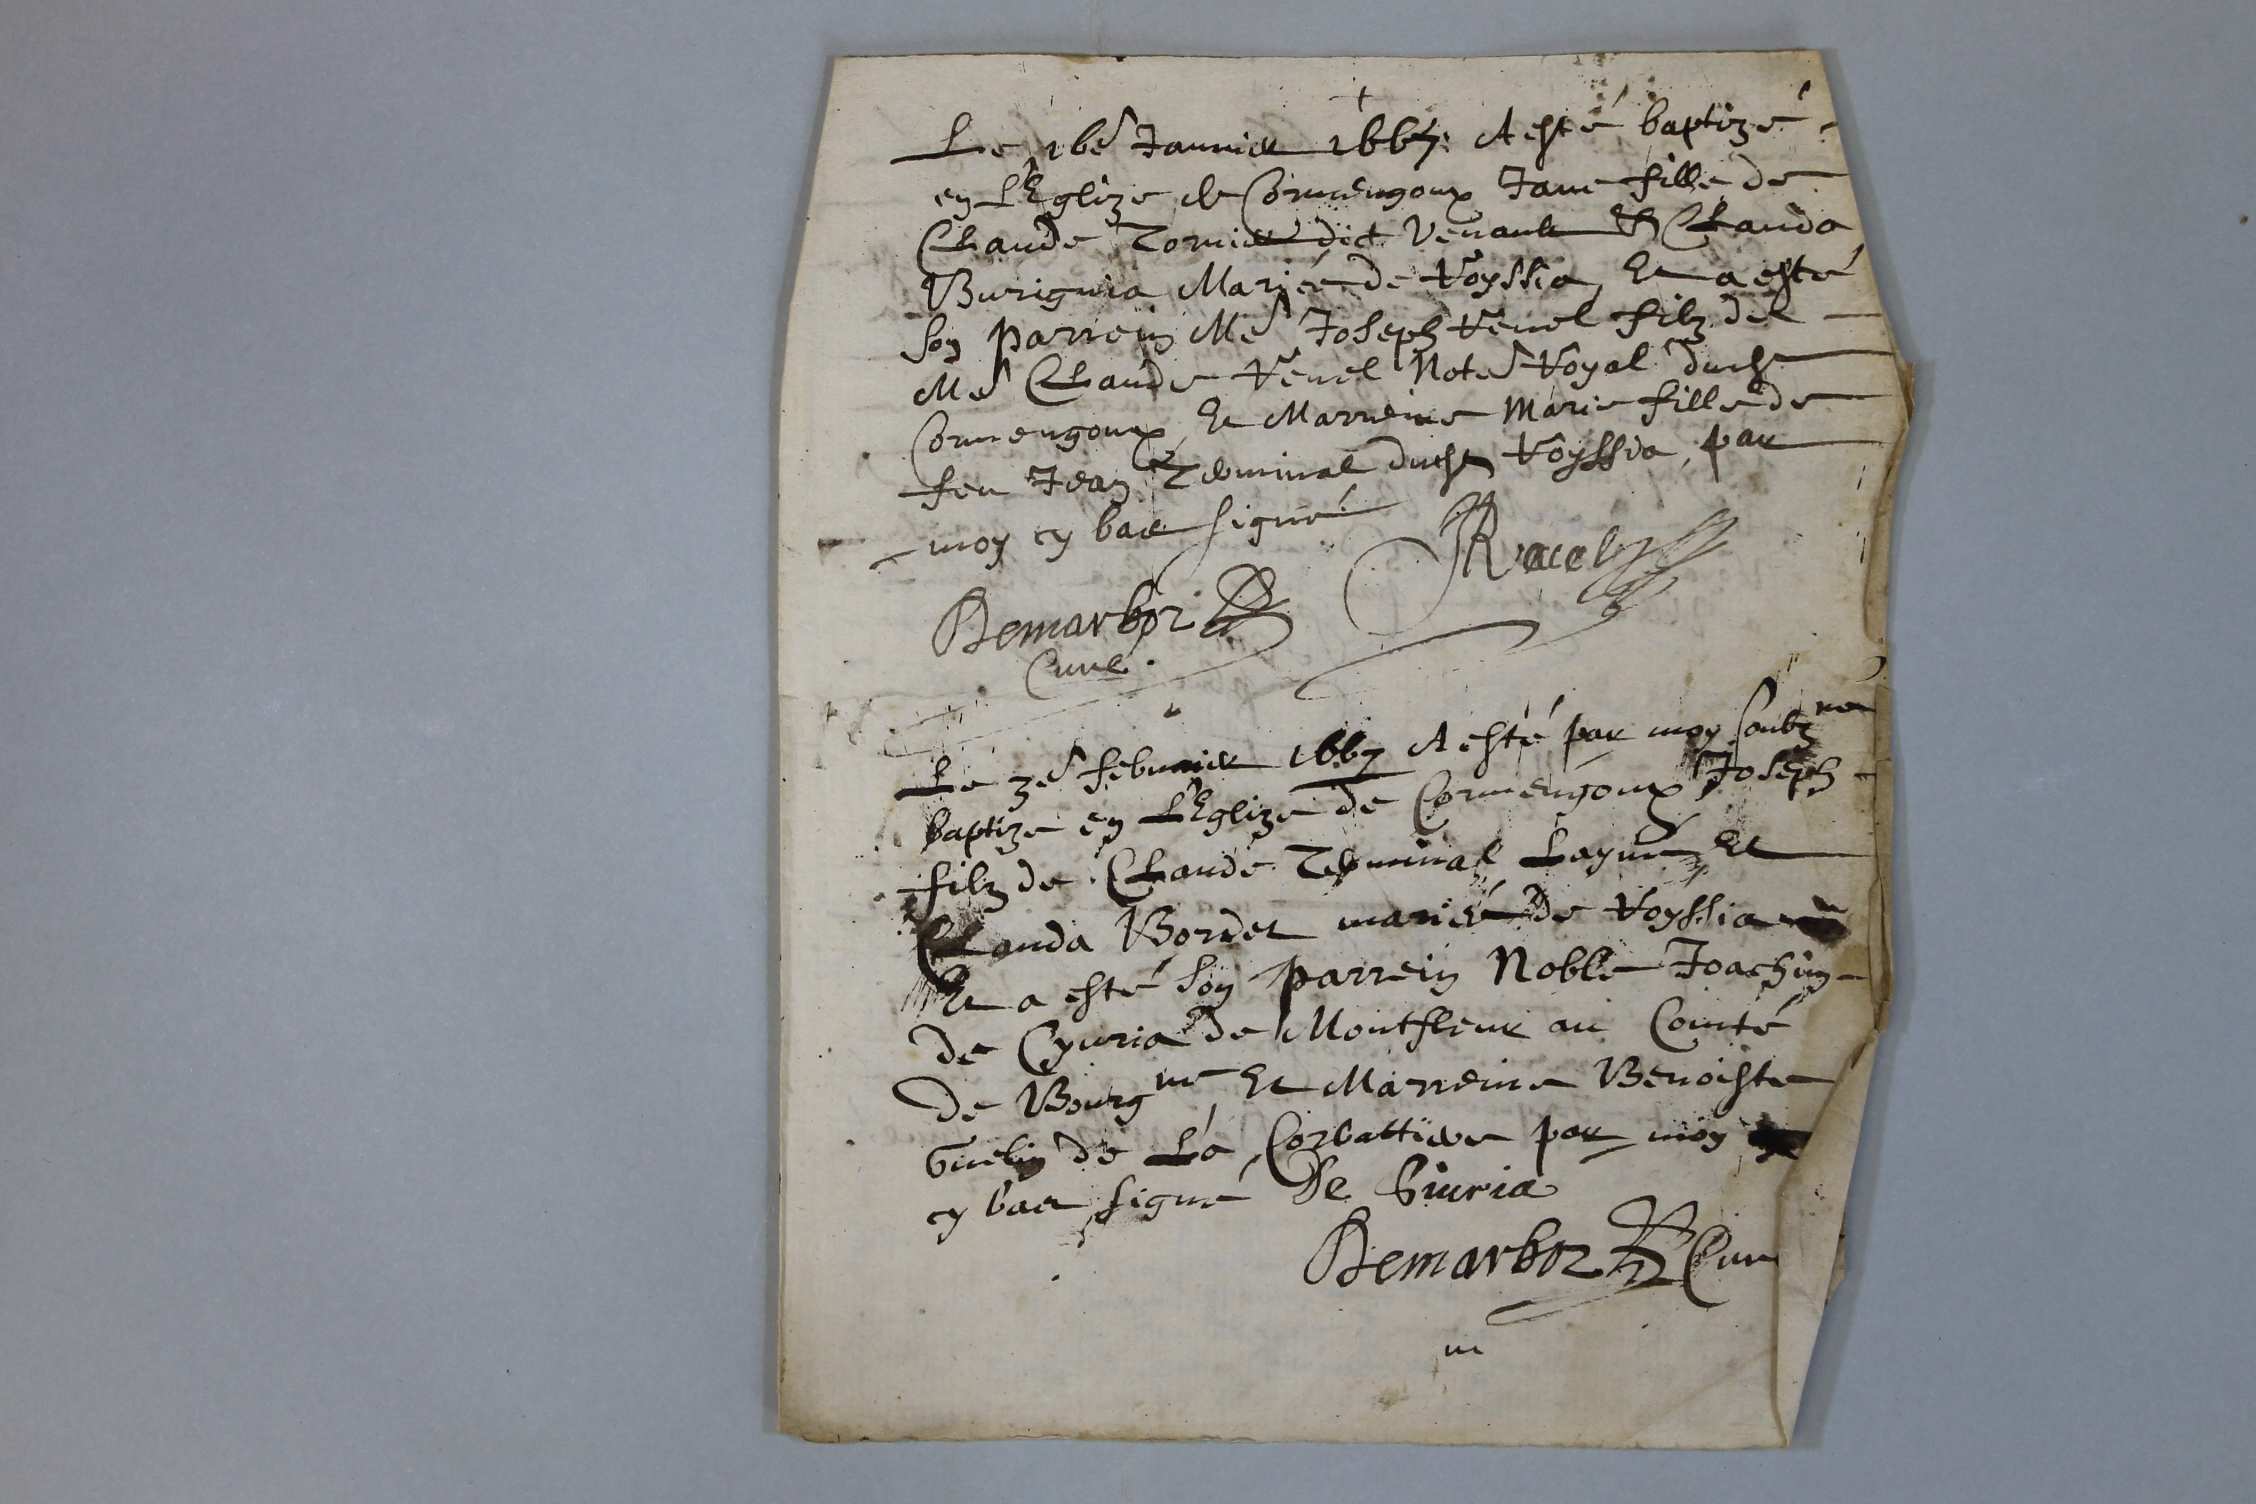 Le 16e Januier 1667. A esté baptizé
en L'Eglize de Cormengoux Jane fille de
Claude Tornier dict Venant & Clauda
Buriguia Mariée de Royssia, Et a esté
son parrein Me Joseph Revel filz de
Me Claude Revel Note Royal dudt
Cormengoux, Et Marreine Marie fille de
feu Jean Terminal dudt Royssia, par
moy cy bas signé
JRevel
Demarboz
Curé.
Le 3e februier 1667 A esté par moy soubzné
baptize en L'Eglize de Cormengoux Joseph
filz de Claude Terminal Layné Et
Clauda Bordet mariée de Royssia
Et a esté son parrein Noble Joachin
de Cyuria de Montfleur au Comté
de Bourgne Et Marreine Benoiste
Guelin de La Corbattiere par moy
cy bas signé De Siuria
Demarboz Cure